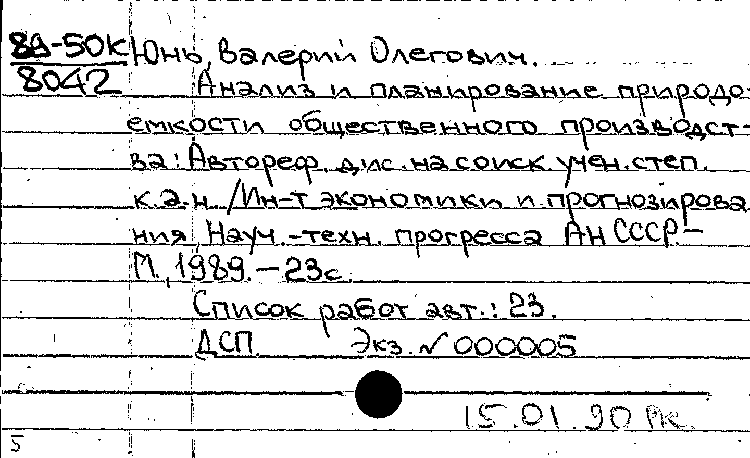 89-50К Юнь, Валерий Олегович.
8042 Анализ и планирование природо-
емкости общественного производст-
ва: Автореф. дис. на соиск. учен. степ.
к.э.н. /Ин-т экономики и прогнозирова
ния Науч.-техн. прогресса АН СССР.-
М., 1989.-23с.
Список работ авт.: 23.
ДСП. Экз. № 000005
15.01.90
5